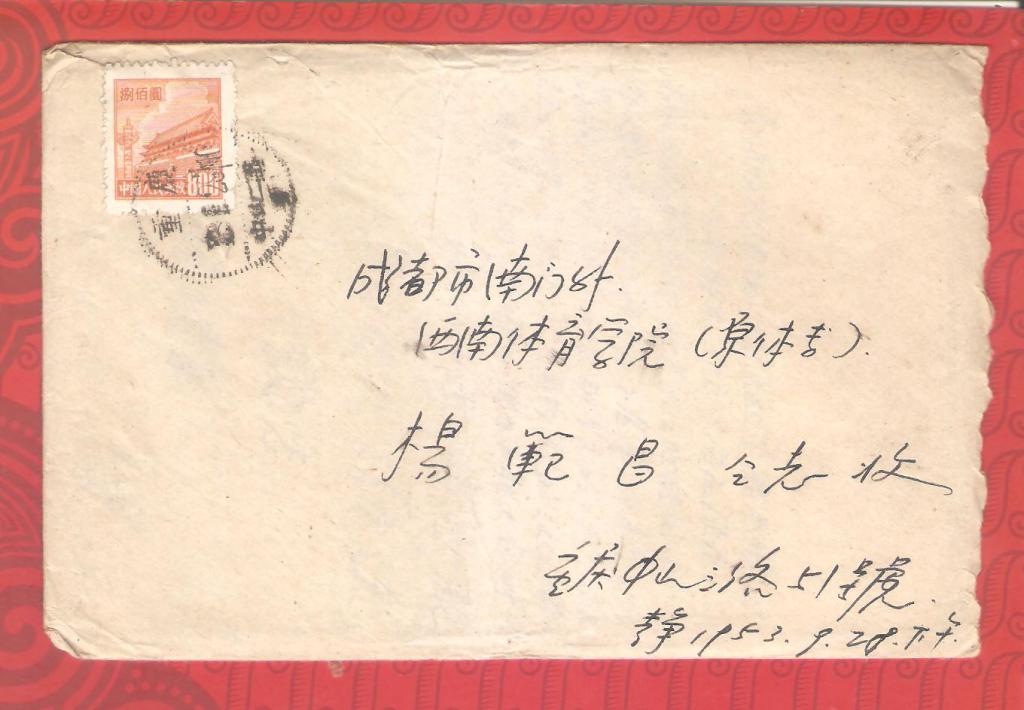 捌佰圓
中國人民郵政 800
重慶
中山二路
成都市(南门外.
西南体育学院(原体专).
楊範昌仝志收
重庆中山三路51號.
静1953.9.28.下午.